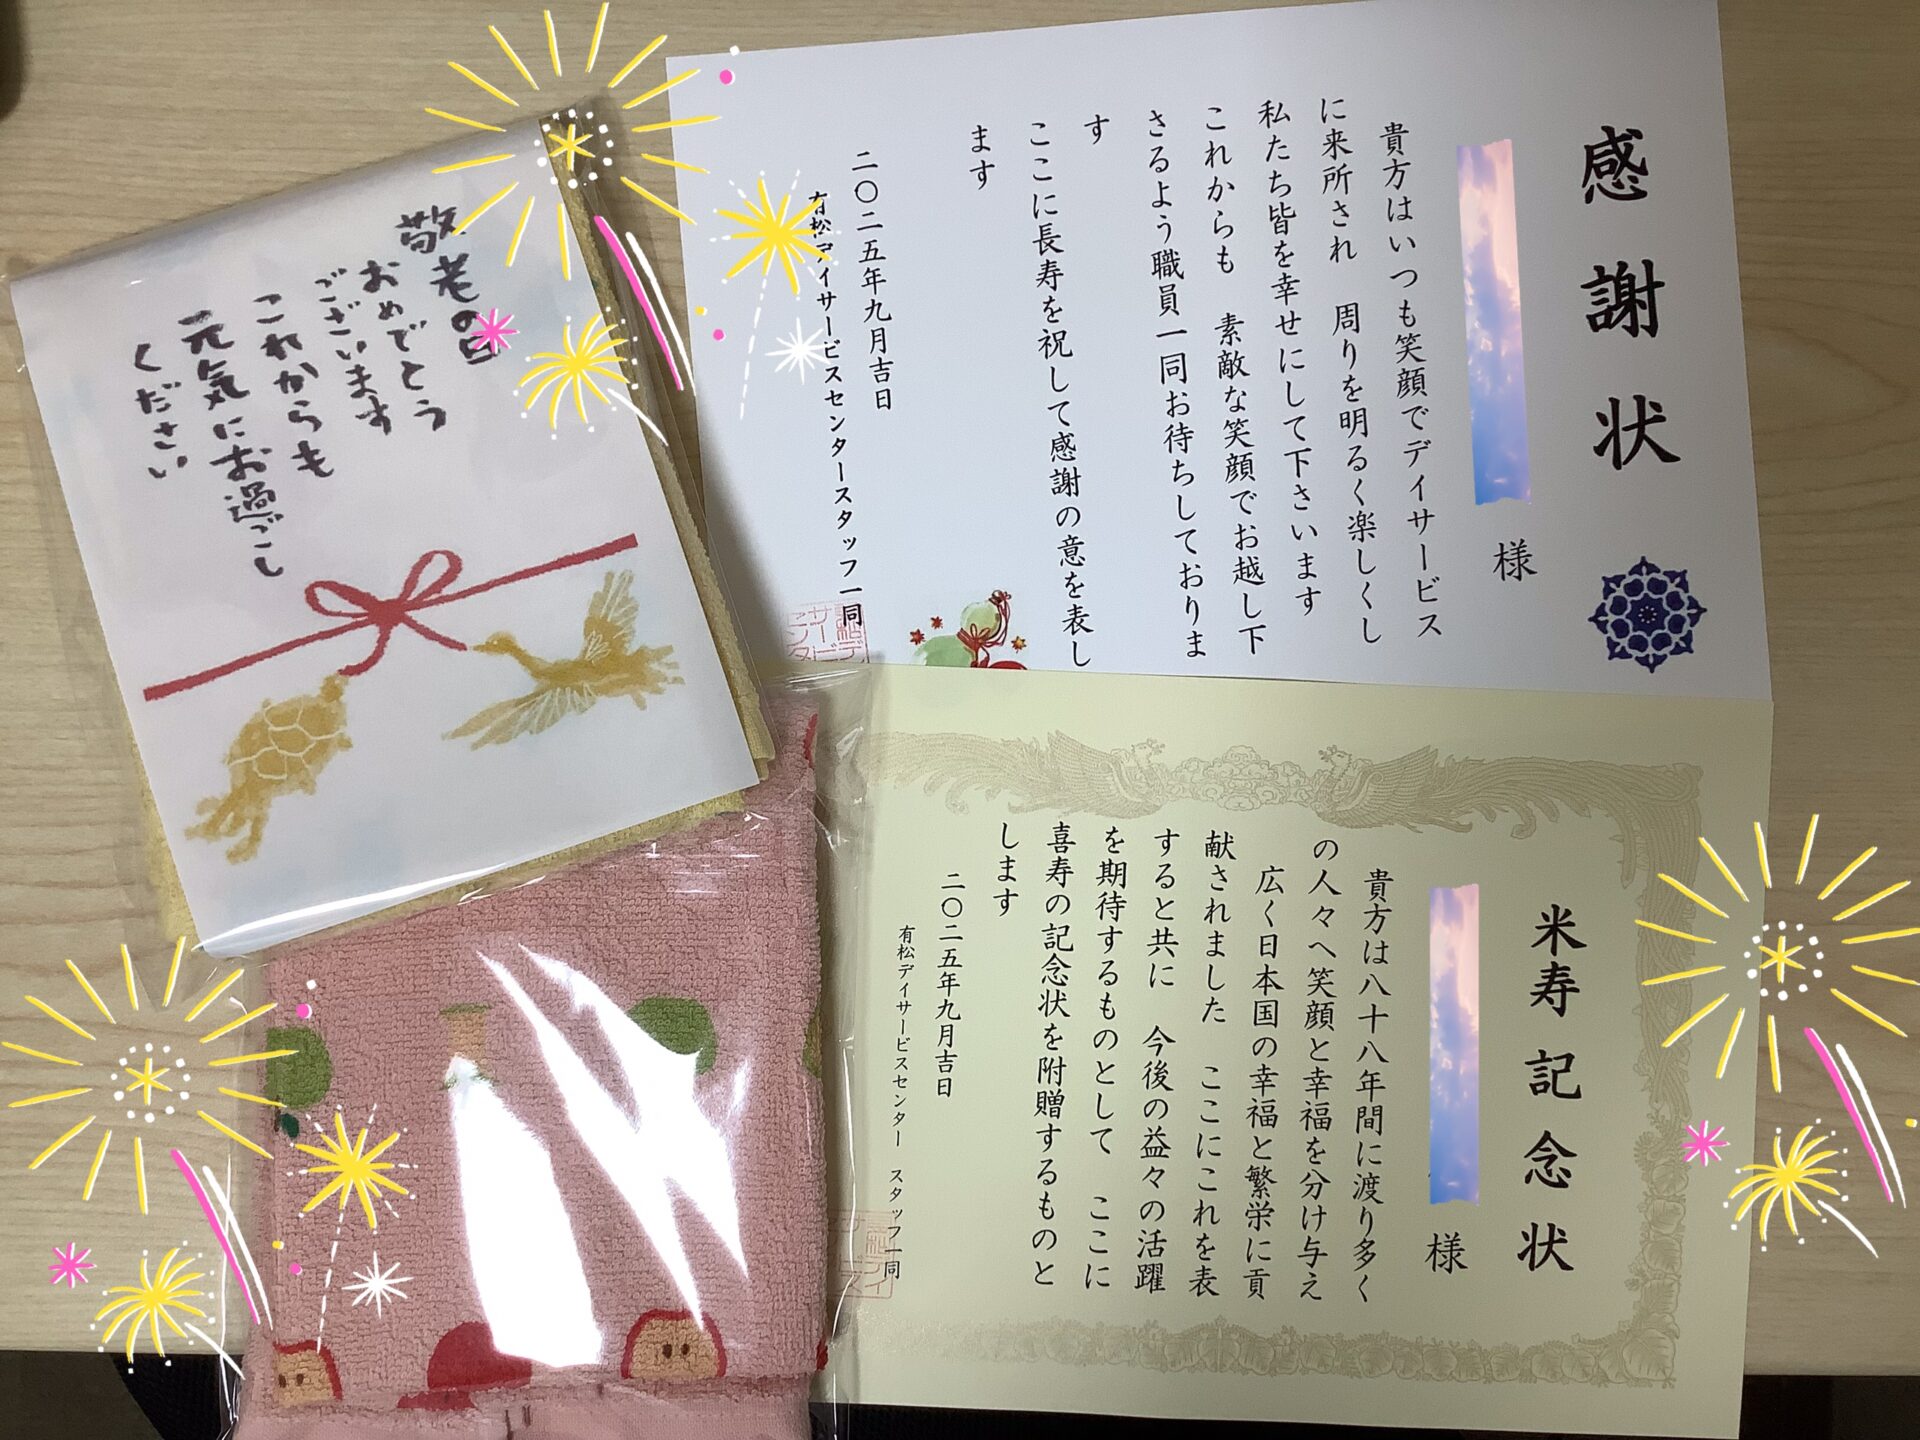 敬老の日
おめでとう
ございます
これからも
元気にお過ごし
ください
感謝状
様
貴方はいつも笑顔でデイサービス
に来所され　周りを明るく楽しくし
私たち皆を幸せにして下さいます
これからも　素敵な笑顔でお越し下
さるよう職員一同お待ちしておりま
す
ここに長寿を祝して感謝の意を表し
ます
二〇二五年九月吉日
有松デイサービスセンタースタッフ一同
米寿記念状
様
貴方は八十八年間に渡り多く
の人々へ笑顔と幸福を分け与え
広く日本国の幸福と繁栄に貢
献されました　ここにこれを表
すると共に　今後の益々の活躍
を期待するものとして　ここに
喜寿の記念状を附贈するものと
します
二〇二五年九月吉日
有松デイサービスセンター　スタッフ一同